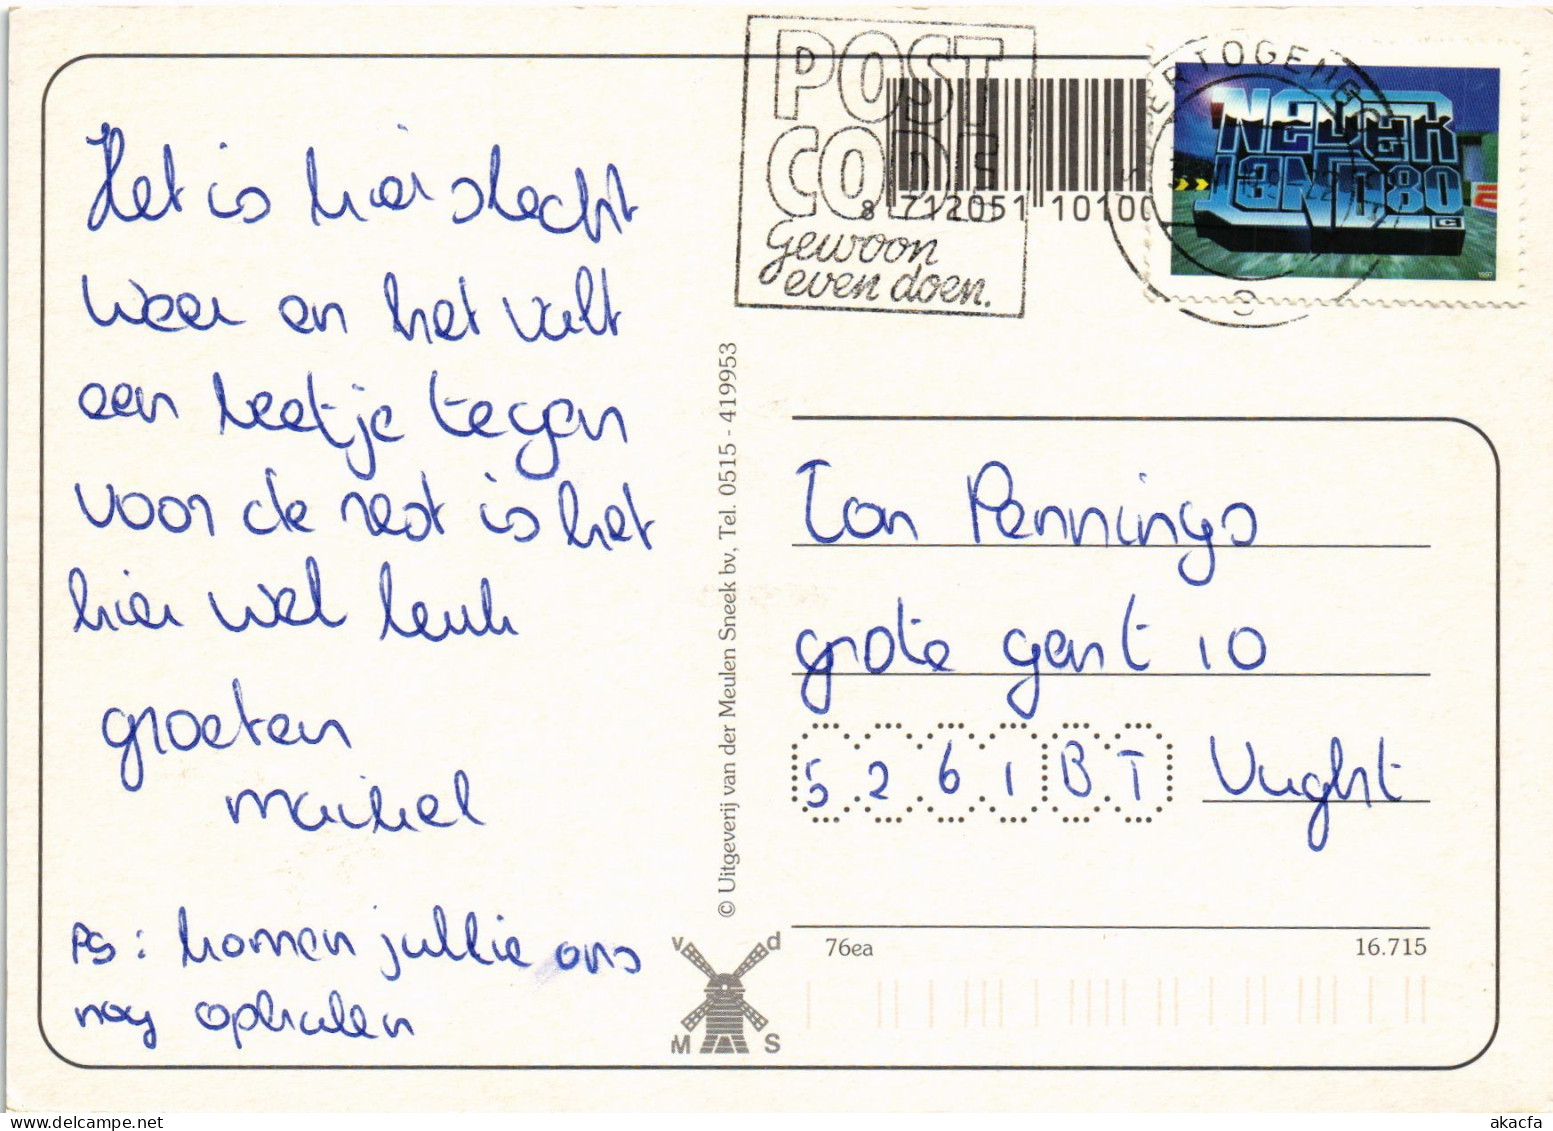 Het is hier slecht
weer en het valt
een beetje tegen
voor de rest is het
hier wel leuk
groeten
maikel
PS: komen jullie ons
nog ophalen
POST
CODE
gewoon
even doen.
8 712051 10100
ERTOGENBO
NEDER
LAND 80
C
1997
© Uitgeverij van der Meulen Sneek bv, Tel. 0515 - 419953
Ton Pennings
grote gent 10
5261BT Vught
76ea 16.715
v d
M S
akacfa